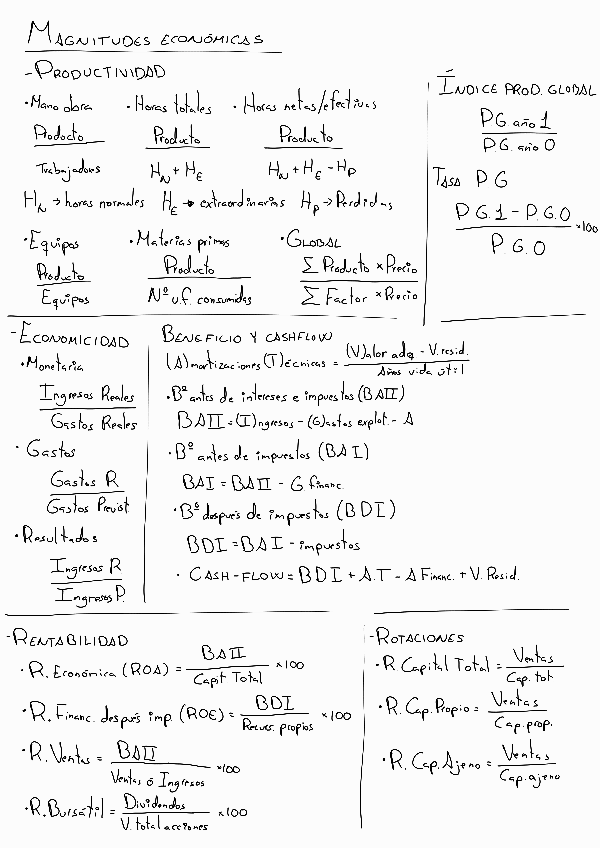 MAGNITUDES ECONÓMICAS
-PRODUCTIVIDAD
·Mano obra ·Horas totales ·Horas netas/efectivas
Producto / Trabajadores
Producto / H_N + H_E
Producto / H_N + H_E - H_P
H_N → horas normales H_E → extraordinarias H_P → Perdidas
·Equipos ·Materias primas ·GLOBAL
Producto / Equipos
Producto / Nº u.f. consumidas
Σ Producto × Precio / Σ Factor × Precio
ÍNDICE PROD. GLOBAL
P G año 1 / P.G. año 0
TASA P G
P G.1 - P.G.0 / P.G.0 ×100
-ECONOMICIDAD
·Monetaria
Ingresos Reales / Gastos Reales
·Gastos
Gastos R / Gastos Previst
·Resultados
Ingresos R / Ingresos P.
BENEFICIO Y CASHFLOW
(A)mortizaciones (T)écnicas = (V)alor adq - V.resid. / Años vida útil
·Bº antes de intereses e impuestos (BAII)
BAII = (I)ngresos - (G)astos explot. - A
·Bº antes de impuestos (BAI)
BAI = BAII - G financ.
·Bº después de impuestos (BDI)
BDI = BAI - impuestos
· CASH-FLOW = BDI + A.T - A Financ. + V. Resid.
-RENTABILIDAD
·R. Económica (ROA) = BAII / Capit Total ×100
·R. Financ. después imp. (ROE) = BDI / Recurs. propios ×100
·R. Ventas = BAII / Ventas ó Ingresos ×100
·R. Bursátil = Dividendos / V. total acciones ×100
-ROTACIONES
·R Capital Total = Ventas / Cap. tot
·R. Cap. Propio = Ventas / Cap. prop.
·R. Cap. Ajeno = Ventas / Cap. ajeno